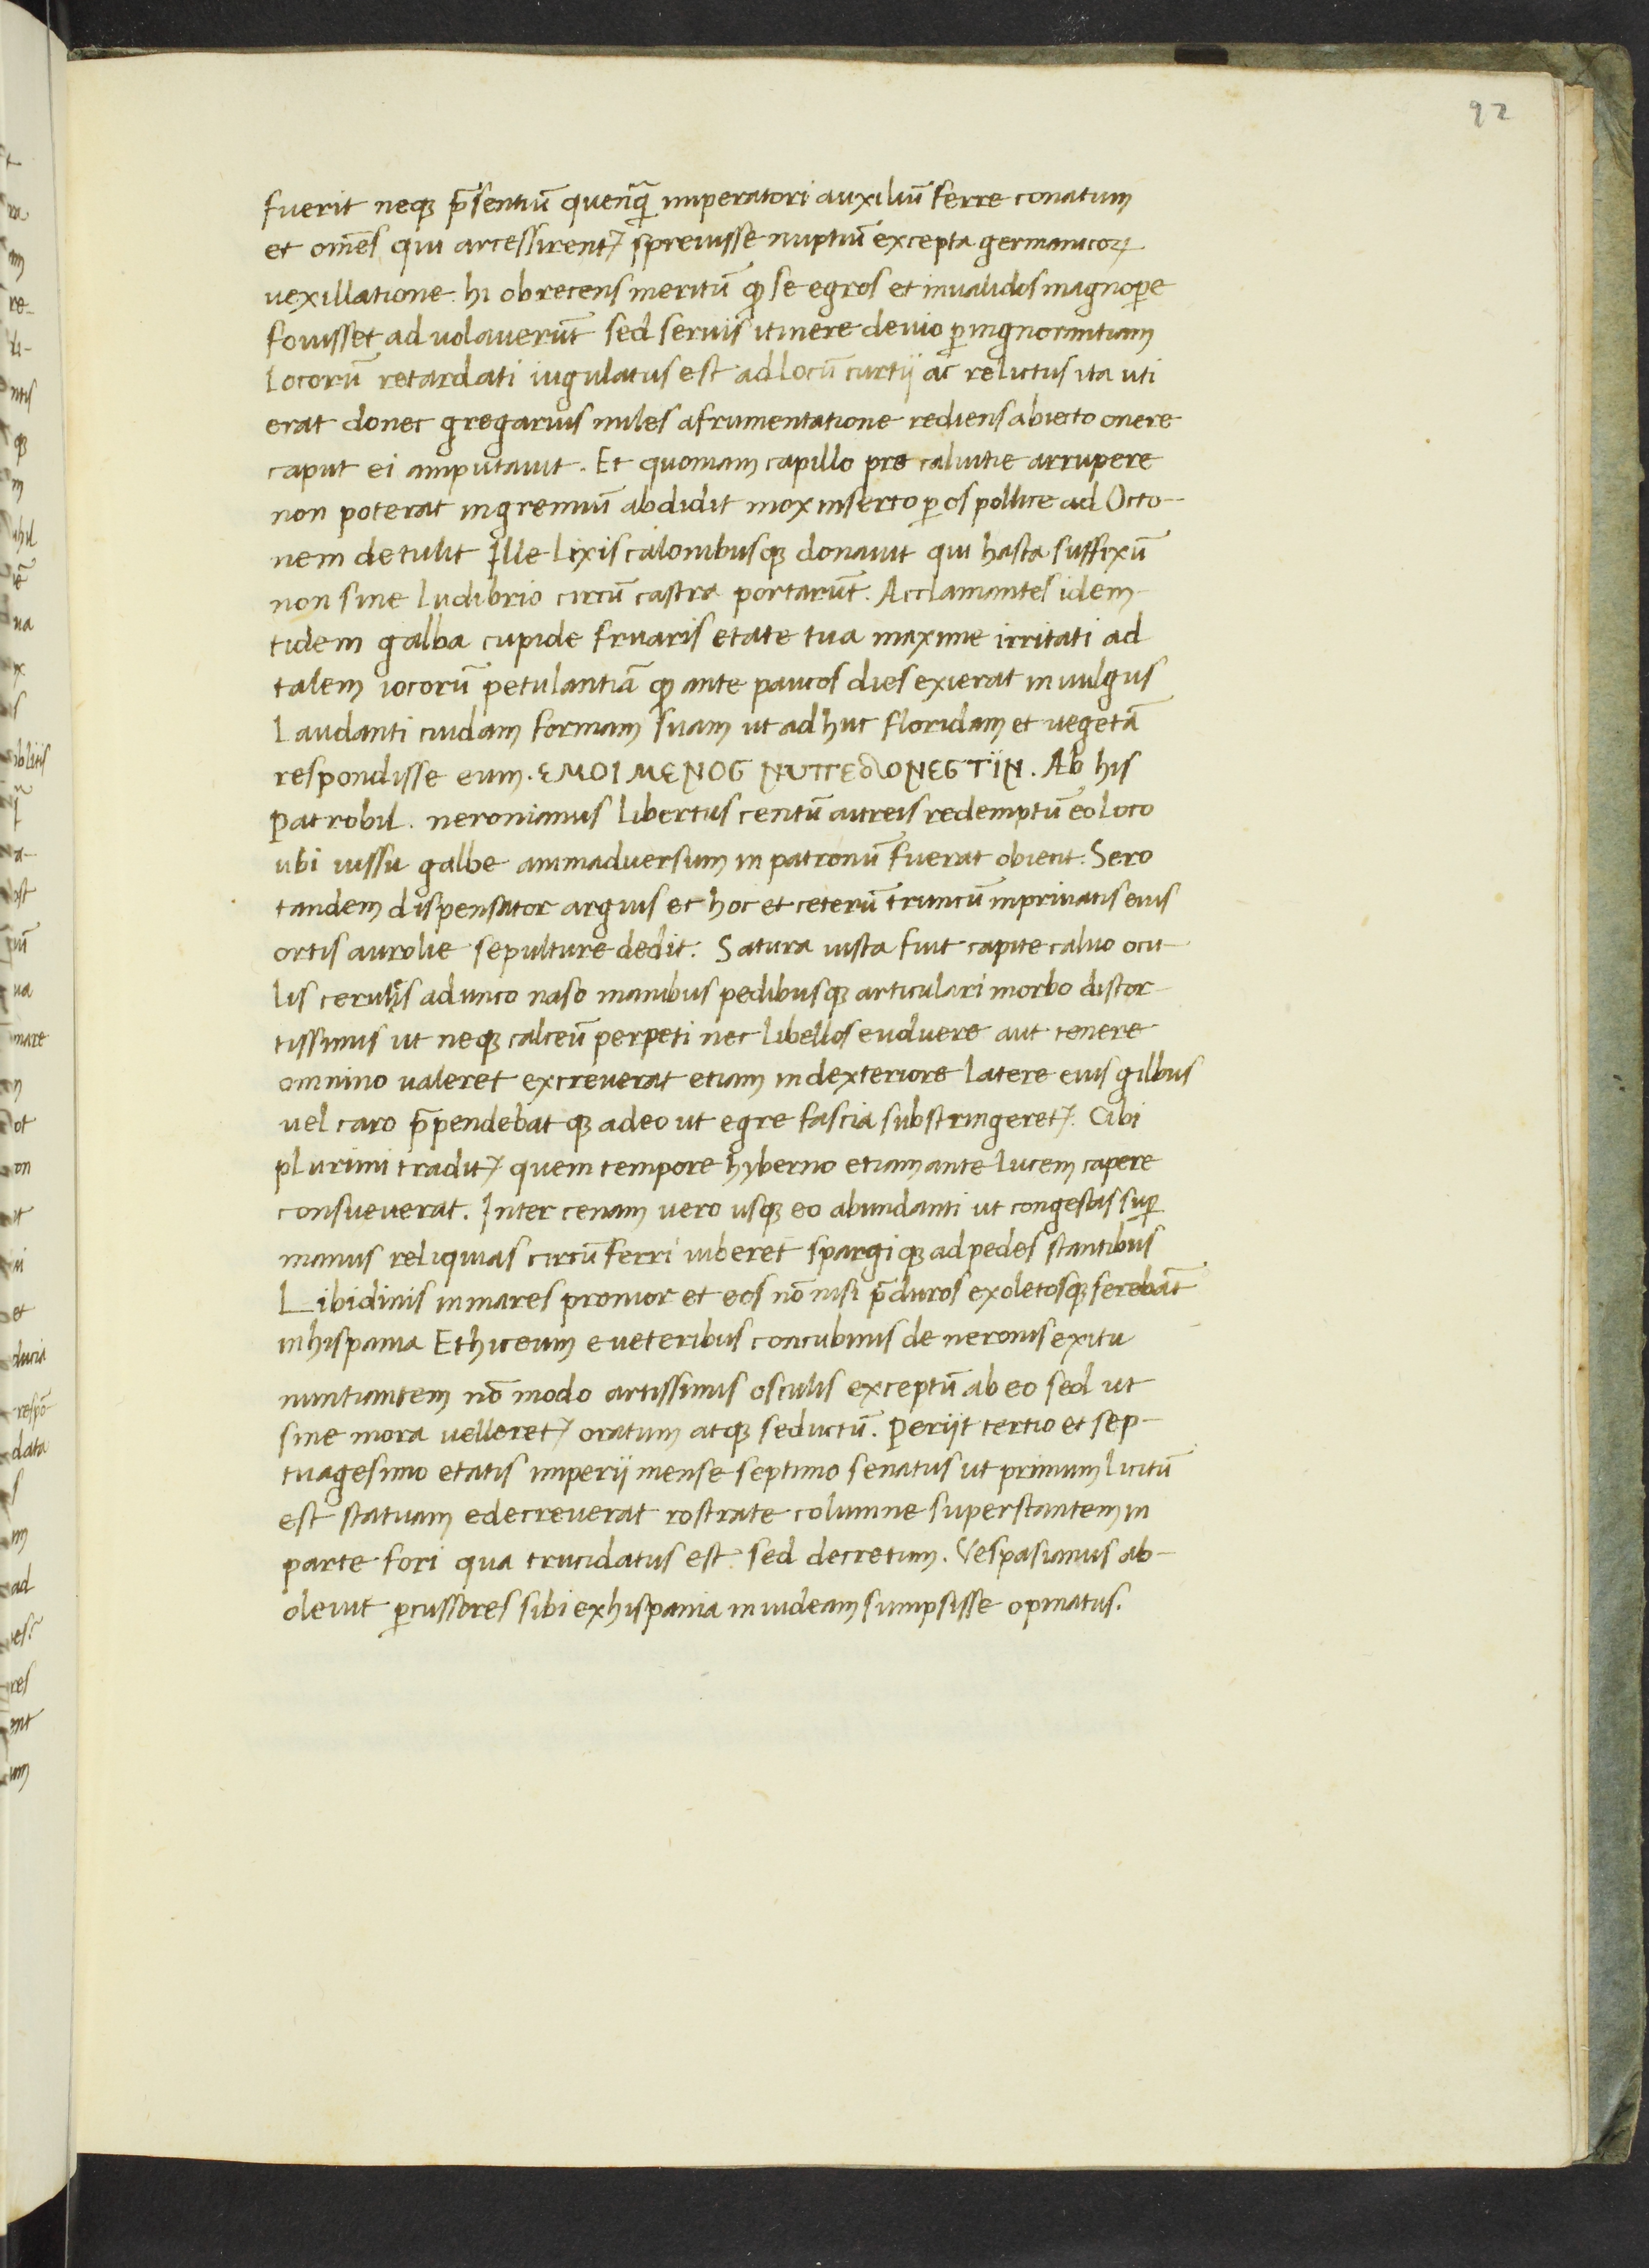 92
fuerit neqꝫ p̄sentiū quenq̄ imperatori auxiliū ferre conatum
et om̄es qui arcessirentᷣ spreuisse nuptiū excepta germanicoꝝ
uexillatione hi ob recens meritū ꝙ se egros et inualidos magnoꝑe
fouisset aduolauerūt sed seruis itinere deuio ꝑ ingnorantiam
locorū retardati iugulatus est ad locū curtij ac relictus ita uti
erat donec gregarius miles a frumentatione rediens abiecto onere
caput ei amputauit. Et quoniam capillo pre caluitie arrupere
non poterat in gremiū abdidit mox inserto ꝑ os pollice ad Octo-
nem detulit Ille lixis calonibusqꝫ donauit qui hasta suffixū
non sine ludibrio circū castra portarūt. Acclamantes idem
tidem galba cupide fruaris etate tua maxime irritati ad
talem iocorū petulantiā ꝙ ante paucos dies exierat in uulgus
Laudanti cuidam formam suam ut adhuc floridam et uegetā
respondisse eum. ЄMOI MЄNOG NUΠЄδONЄGTÏN. Ab his
patrobil. neronianus libertus centū aureis redemptū eo loco
ubi iussu galbe animaduersum in patronū fuerat obiecit. Sero
tandem dispensator argius et hoc et ceterū truncū in priuatis eius
ortis aurolie sepulture dedit: Satura iusta fuit capite caluo ocu-
lis cerulijs adunco naso manibus pedibusqꝫ articulari morbo distor-
tissimis ut neqꝫ calceū perpeti nec libellos euoluere aut tenere
omnino ualeret excreuerat etiam in dexteriore latere eius gilbus
uel caro p̄pendebat qꝫ adeo ut egre fascia substringeretᷣ. Cibi
plurimi traditᷣ quem tempore hyberno etiam ante lucem capere
consueuerat. Inter cenam uero usqꝫ eo abundanti ut congestas suꝑ
manus reliquias circūferri iuberet spargi qꝫ ad pedes stantibus
Libidinis in mares pronior et eos nō nisi p̄duros exoletosqꝫ ferebāt
in hispania Ethiceum e ueteribus concubinis de neronis exitu
nuntiantem nō modo artissimis osculis exceptū ab eo sed ut
sine mora uelleretᷣ oratum atqꝫ seductū. Perijt tertio et sep-
tuagesimo etatis imperij mense septimo senatus ut primum licitū
est statuam edecreuerat rostrate columne superstantem in
parte fori qua trucidatus est sed decretum. Vespasianus ab-
oleuit ꝑcussores sibi ex hispania in iudeam sumpsisse opinatus.